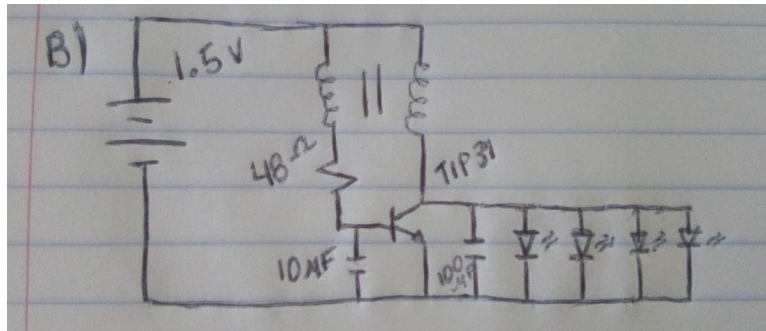 B)
1.5V
48Ω
TIP31
10µF
100
µF